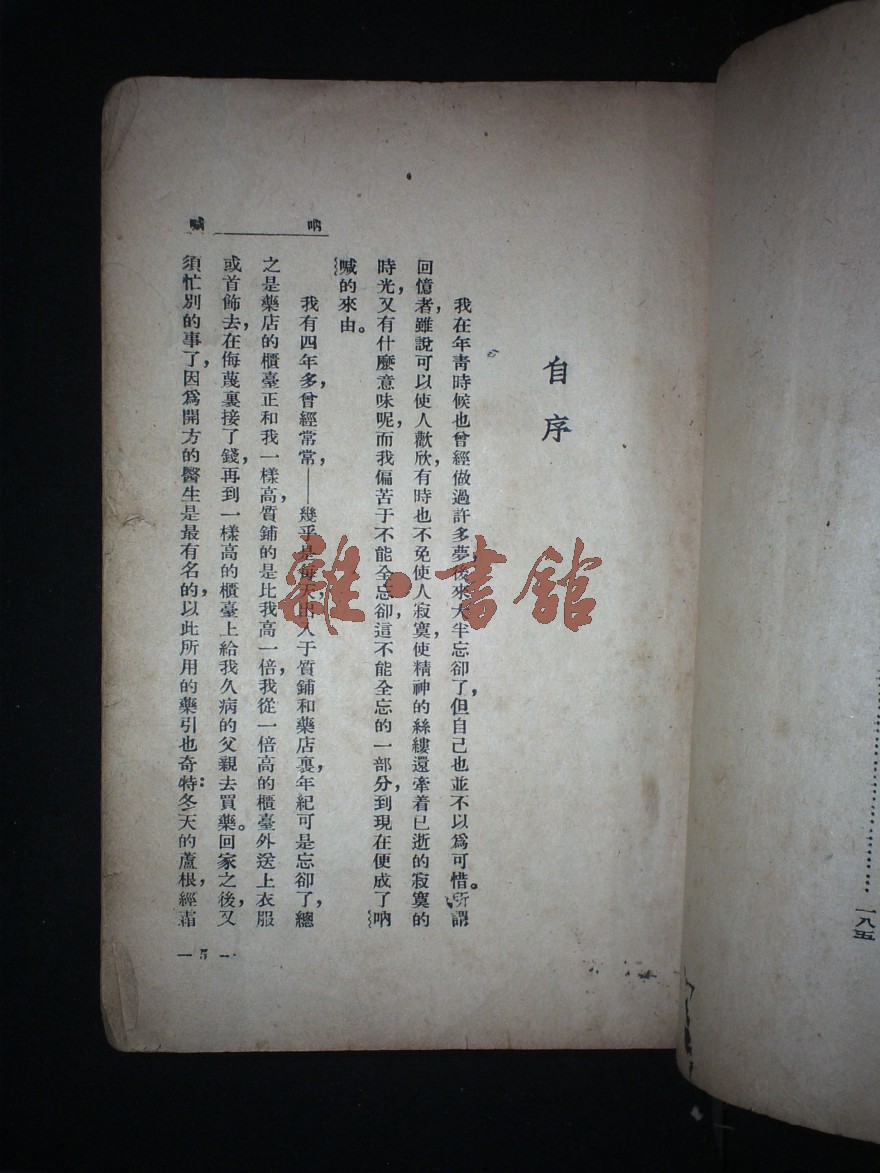 自序
我在年靑時候也曾經做過許多夢，後來大半忘卻了，但自己也並不以爲可惜。所謂
回憶者，雖說可以使人歡欣，有時也不免使人寂寞，使精神的絲縷還牽着已逝的寂寞的
時光，又有什麼意味呢，而我偏苦于不能全忘卻，這不能全忘的一部分，到現在便成了吶
喊的來由。
我有四年多，曾經常常，——幾乎是每天，出入于質鋪和藥店裏，年紀可是忘卻了，總
之是藥店的櫃臺正和我一樣高，質鋪的是比我高一倍，我從一倍高的櫃臺外送上衣服
或首飾去，在侮蔑裏接了錢，再到一樣高的櫃臺上給我久病的父親去買藥。回家之後，又
須忙別的事了，因爲開方的醫生是最有名的，以此所用的藥引也奇特：冬天的蘆根，經霜
吶喊
— 5 —
一八五
雜·書館